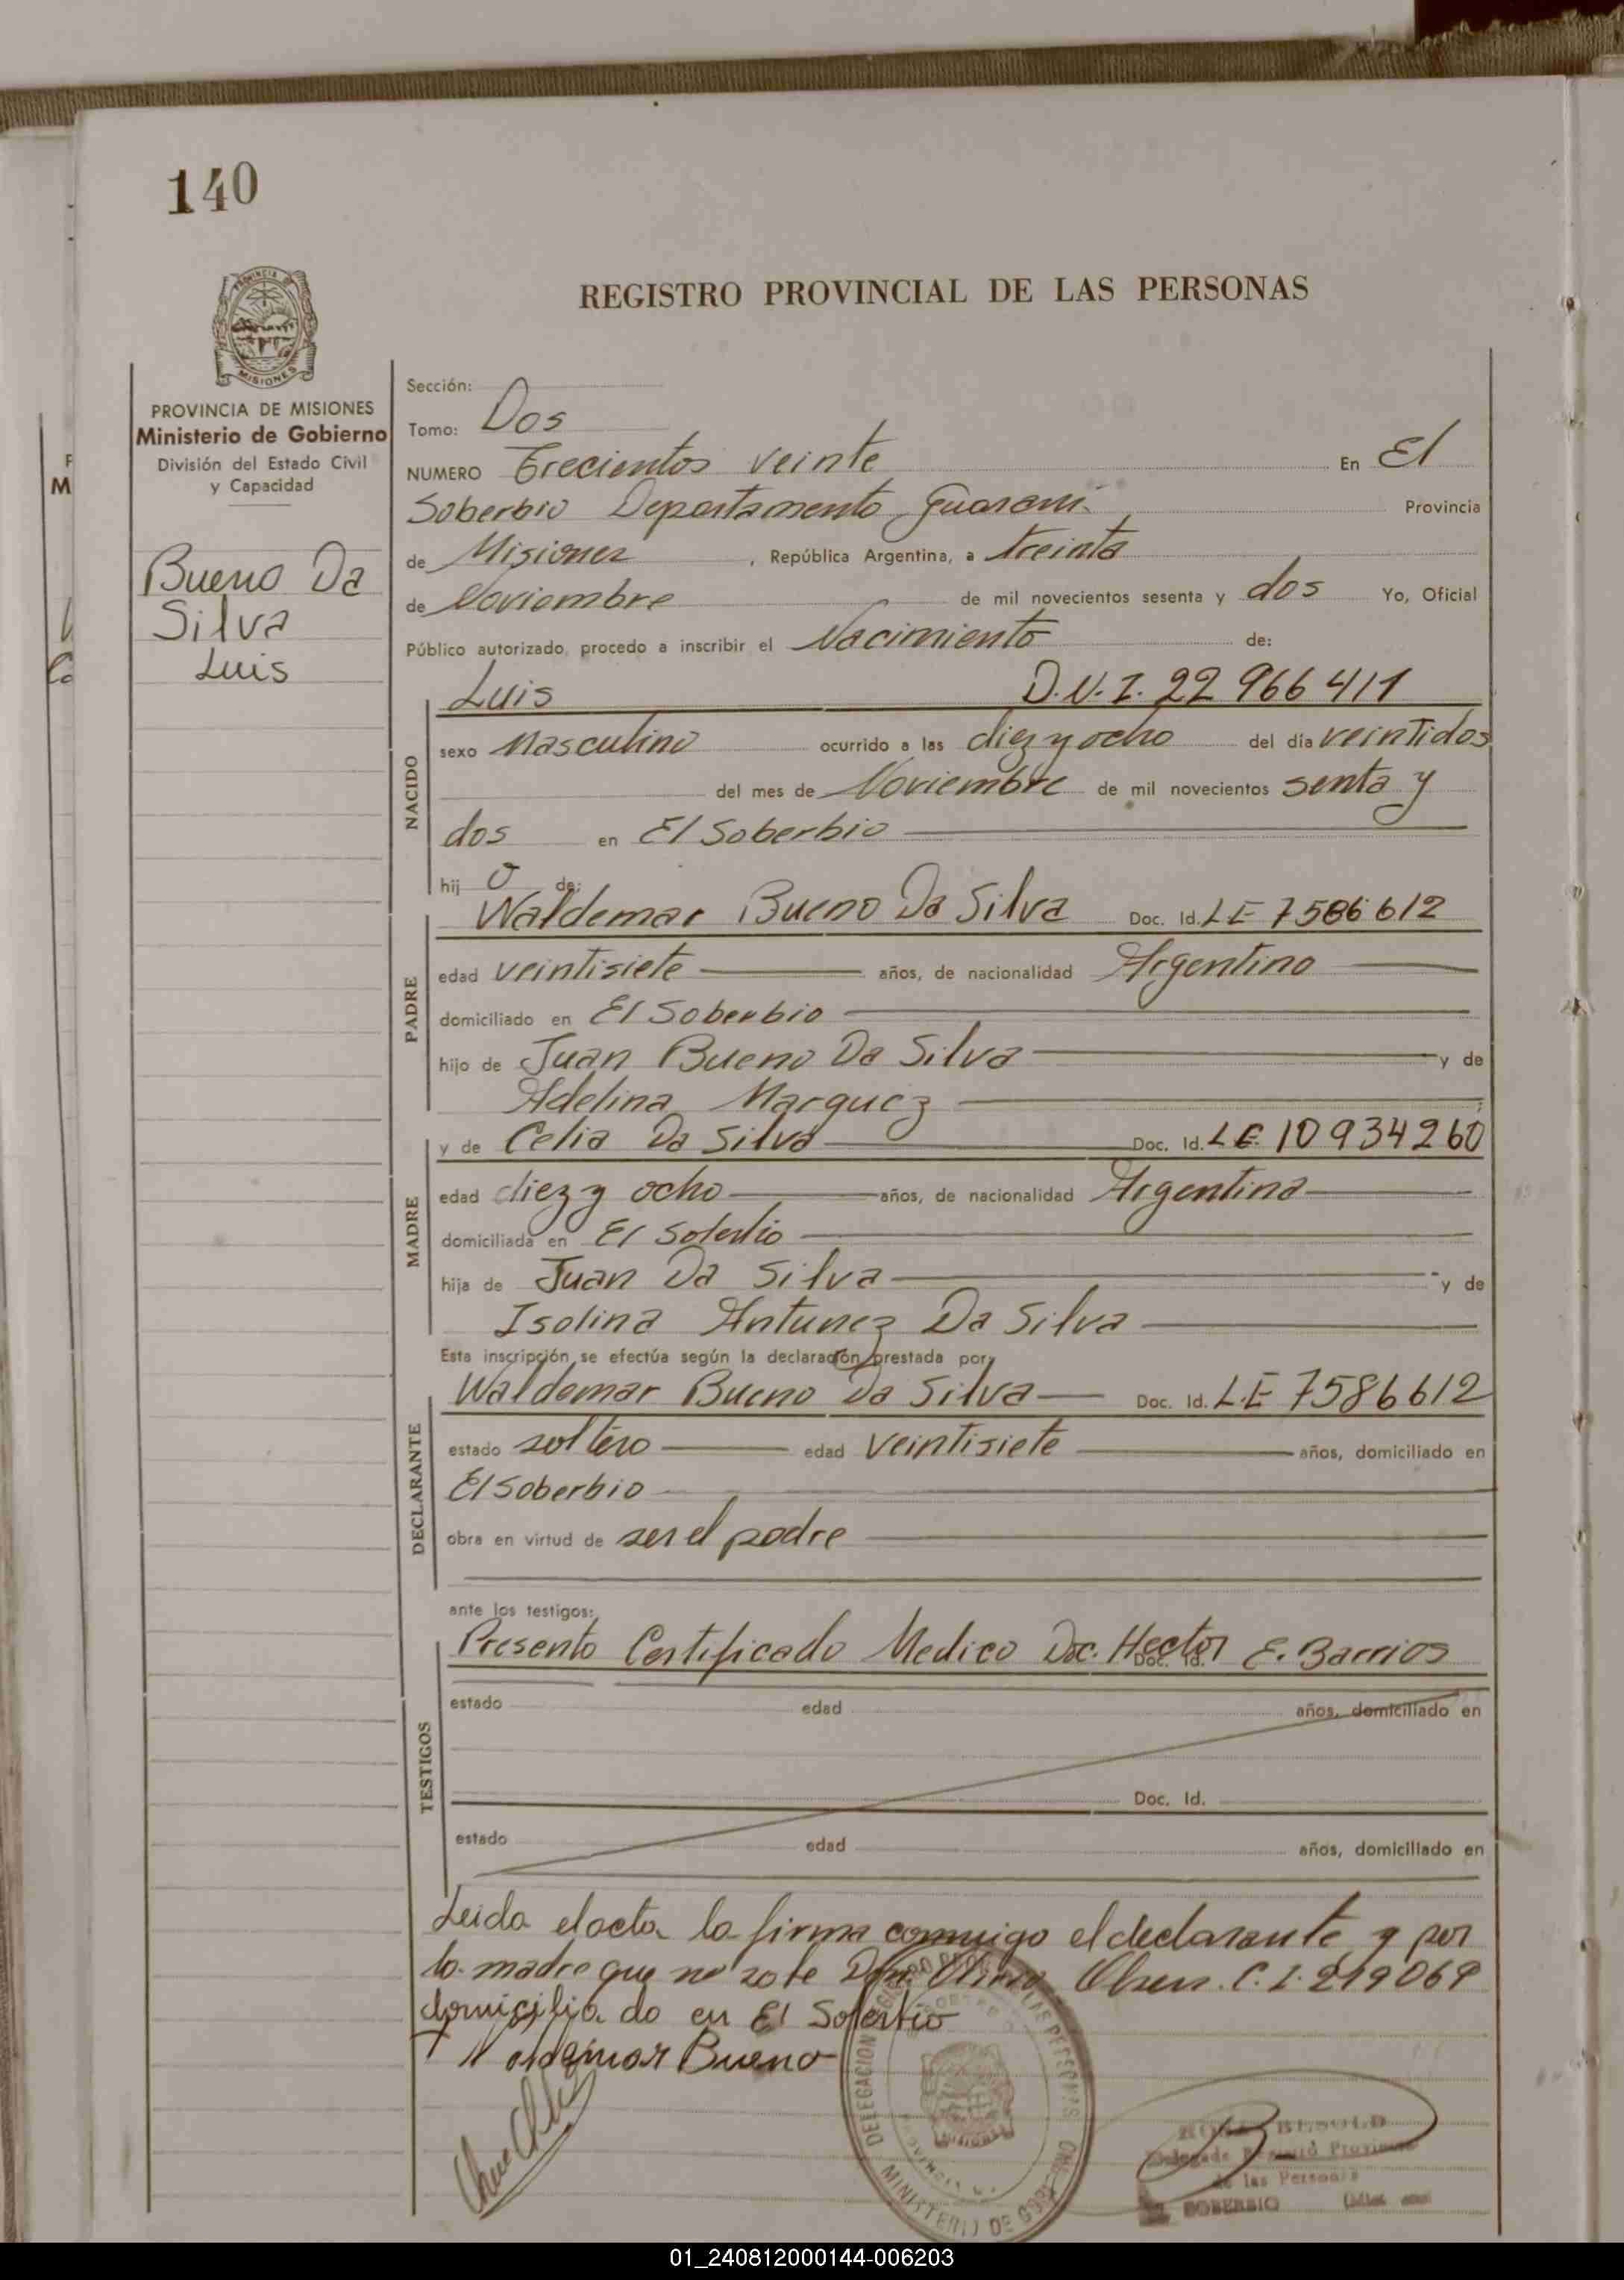 140
REGISTRO PROVINCIAL DE LAS PERSONAS
PROVINCIA DE MISIONES
Ministerio de Gobierno
División del Estado Civil
y Capacidad
Bueno Da
Silva
Luis
Sección:
Tomo: Dos
NUMERO Trecientos veinte En El
Soberbio Departamento Guarani Provincia
de Misiones , República Argentina, a treinta
de Noviembre de mil novecientos sesenta y dos Yo, Oficial
Público autorizado, procedo a inscribir el Nacimiento de:
NACIDO
Luis D.N.I. 22 966 411
sexo Masculino ocurrido a las diez y ocho del día veintidos
del mes de Noviembre de mil novecientos senta y
dos en El Soberbio
hij o de:
PADRE
Waldemar Bueno Da Silva Doc. Id. LE 7586612
edad veintisiete años, de nacionalidad Argentino
domiciliado en El Soberbio
hijo de Juan Bueno Da Silva y de
Adelina Marquez ;
MADRE
y de Celia Da Silva Doc. Id. LE 10934260
edad diez y ocho años, de nacionalidad Argentina
domiciliada en El Soberbio
hija de Juan Da Silva y de
Isolina Antunez Da Silva
Esta inscripción se efectúa según la declaración prestada por:
DECLARANTE
Waldemar Bueno Da Silva Doc. Id. L.E 7586612
estado soltero edad veintisiete años, domiciliado en
El Soberbio
obra en virtud de ser el padre
ante los testigos:
TESTIGOS
Presento Certificado Medico Doc. Hector E. Barrios
Doc. Id.
estado edad años, domiciliado en
Doc. Id.
estado edad años, domiciliado en
Leida el acta la firma conmigo el declarante y por
la madre que no sabe Don Olsen C.I. 219069
domiciliado en El Soberbio
Waldemar Bueno
DELEGACION REGISTRO LAS PERSONAS
MINISTERIO DE GOB
MISIONES
Delegado Registro Provincial
de las Personas
EL SOBERBIO
01_240812000144-006203